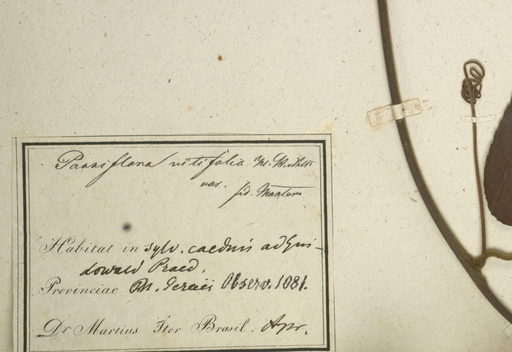 Passiflora vitifolia
var. fid. Masters
Habitat in sylv. caeduis ad
Praed.
Provinciae Rh. Observ. 1081.
Dr Martius Iter Brasil. Apr.